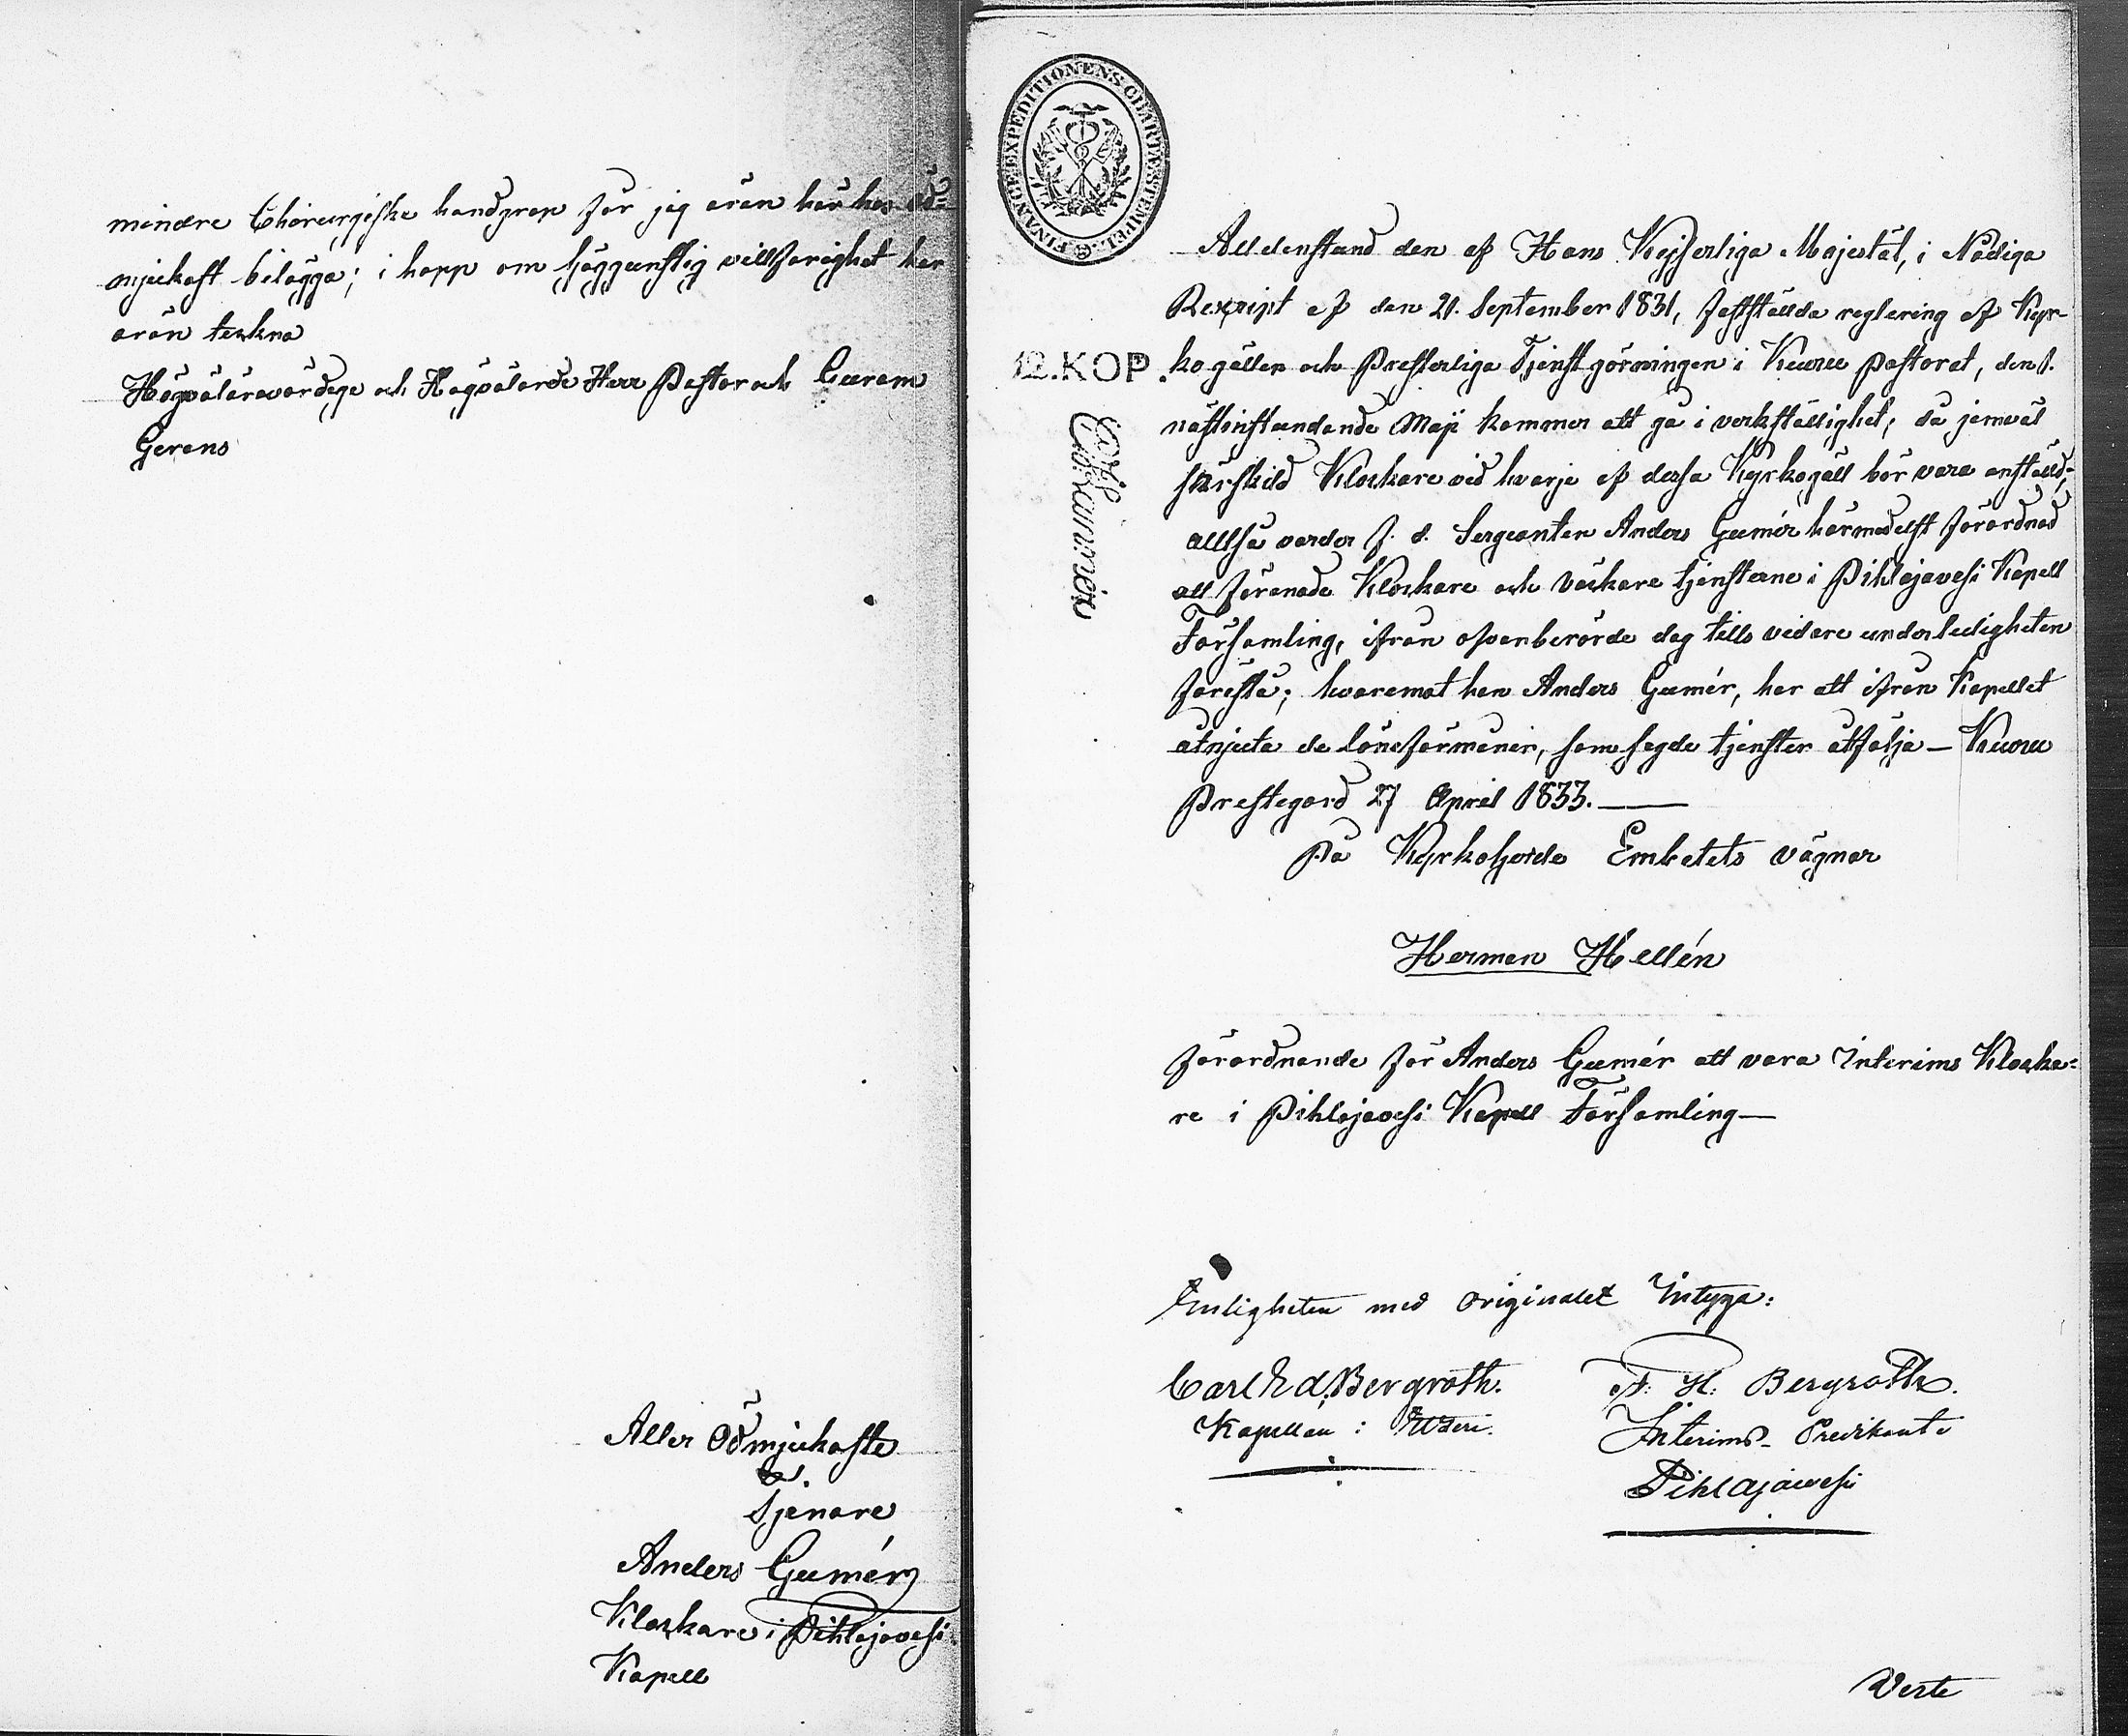 mindre Chirurgiska handgrep får jag äran här hos öd=
mjukast bilägga; i hopp om höggunstig villfarighet har
äran teckna
Högvälärevördige och Högvälärde Herr Pastor och Curam
Gerens
Aller Ödmjukaste
Tjenare
Anders Gumér
Klockare i Pihlajavesi
Kapell
FINANCE EXPEDITIONENS CHARTÆ STEMPEL
12. KOP.
Alldenstund den af Hans Kejserliga Majestät, i Nådiga
Rescript af den 21. September 1831, fastställda reglering af Kyr-
kogällen och Presterliga Tjenstgörningen i Keuru Pastorat, den 1.
nästinstundande Maji kommer att gå i verkställighet; då jemväl
särskild Klockare vid hvarje af dessa Kyrkogäll bör vara anställd;
alltså varder f. d. Sergeanten Anders Gumér härmedelst förordnad
att förenade Klockare och Väckare tjensterne i Pihlajavesi Kapell
Församling, ifrån ofvanberörde dag tills vidare under ledigheten
förestå; hvaremot han Anders Gumér, har att ifrån Kapellet
åtnjuta de löneförmåner, som sagde tjenster åtfölja — Keuru
Prestegård 27 April 1833. —
På Kyrkoherde Embetets vägnar
Herman Hellén
Förordnande för Anders Gumér att vara Interims Klocka=
re i Pihlajavesi Kapell Församling —
Enligheten med Originalet Intyga:
Carl Ed. Bergroth. F. H. Bergroth.
Kapellan i Interims- Predikant i
Pihlajawesi
Verte